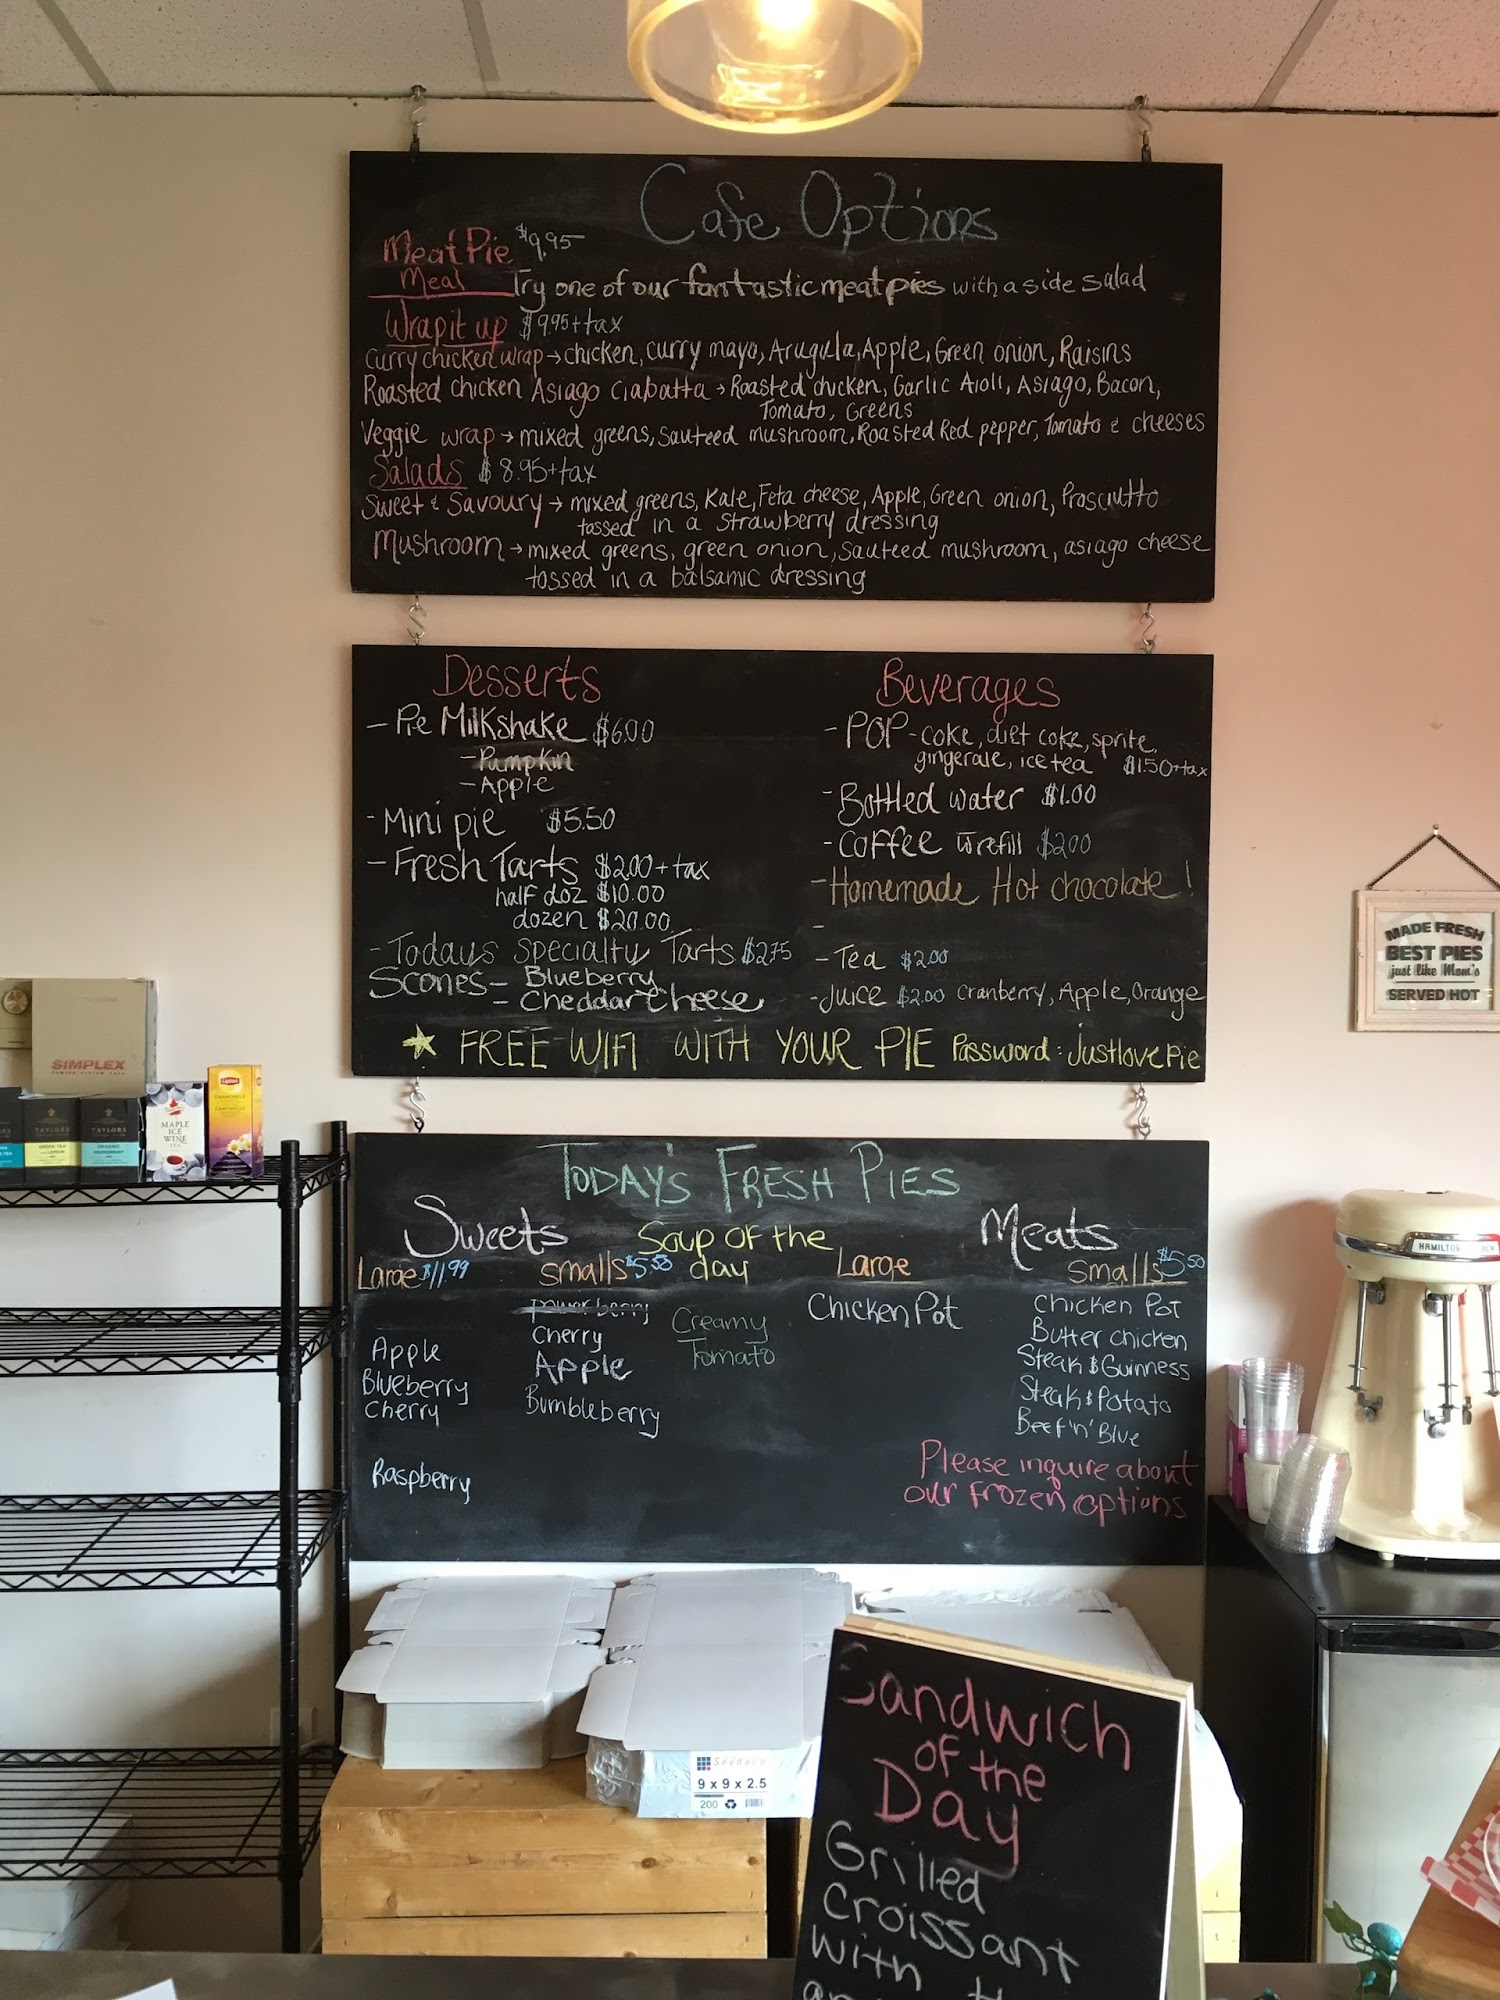 Cafe Options
Meat Pie $9.95
Meal Try one of our fantastic meat pies with a side salad
Wrap it up $9.95+tax
Curry chicken wrap→chicken, curry mayo, Arugula, Apple, Green onion, Raisins
Roasted chicken Asiago Ciabatta→Roasted chicken, Garlic Aioli, Asiago, Bacon,
Tomato, Greens
Veggie wrap→mixed greens, Sauteed mushroom, Roasted Red pepper, Tomato & cheeses
Salads $8.95+tax
Sweet & Savoury→mixed greens, Kale, Feta cheese, Apple, Green onion, Prosciutto
tossed in a strawberry dressing
Mushroom→mixed greens, green onion, Sauteed mushroom, asiago cheese
tossed in a balsamic dressing
Desserts
-Pie Milkshake $6.00
-Pumpkin
-Apple
-Mini pie $5.50
-Fresh Tarts $2.00+tax
half doz $10.00
dozen $20.00
-Todays Specialty Tarts $2.75
Scones-Blueberry
-Cheddar Cheese
Beverages
-POP-coke, diet coke, sprite,
gingerale, ice tea $1.50+tax
-Bottled water $1.00
-Coffee w refill $2.00
-Homemade Hot chocolate!
-
-Tea $2.00
-Juice $2.00 Cranberry, Apple, Orange
FREE WIFI WITH YOUR PIE Password: justlovepie
MADE FRESH
BEST PIES
just like Mom's
SERVED HOT
SIMPLEX
TAYLORS
GREEN TEA
TAYLORS
ORGANIC
PEPPERMINT
MAPLE
ICE
WINE
TEA
Lipton
CAMOMILLE
TODAY'S FRESH PIES
Sweets
Large $11.99
Apple
Blueberry
Cherry
Raspberry
Smalls $5.50
Cherry
Apple
Bumbleberry
Soup of the
day
Creamy
Tomato
Meats
Large
Chicken Pot
Smalls $5.50
Chicken Pot
Butter chicken
Steak & Guinness
Steak & Potato
Beef 'n' Blue
Please inquire about
our frozen options
HAMILTON
Seydaco
9 x 9 x 2.5
200
Sandwich
of the
Day
Grilled
Croissant
with